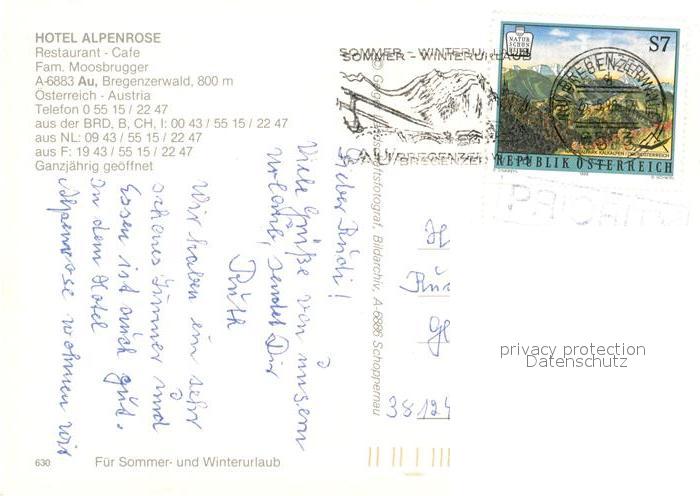 HOTEL ALPENROSE
Restaurant - Cafe
Fam. Moosbrugger
A-6883 Au, Bregenzerwald, 800 m
Österreich - Austria
Telefon 0 55 15 / 22 47
aus der BRD, B, CH, I: 00 43 / 55 15 / 22 47
aus NL: 09 43 / 55 15 / 22 47
aus F: 19 43 / 55 15 / 22 47
Ganzjährig geöffnet
Lieber Rudi!
Viele Grüße von unserm
Urlaub, sendet Dir
Ruth
Wir haben ein sehr
schönes Zimmer und
Essen ist auch gut.
In dem Hotel
Alpenrose wohnen wir
630
Für Sommer- und Winterurlaub
SOMMER - WINTERURLAUB
AU/BREGENZER
Bildarchiv, A-6886 Schoppernau
NATUR
SCHÖN
S7
REPUBLIK ÖSTERREICH
38124
privacy protection
Datenschutz